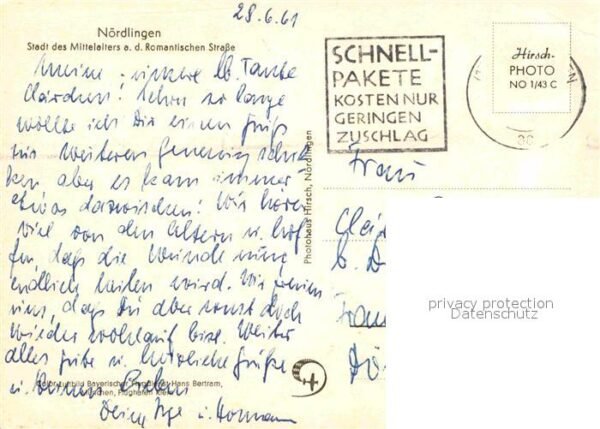 28.6.61
Nördlingen
Stadt des Mittelalters a. d. Romantischen Straße
Meine lb. Tante
Clärchen! Schon so lange
wollte ich Dir einen Gruß
zur weiteren Genesung schik-
ken aber es kam immer
etwas dazwischen! Wir hören
viel von den Eltern u. hof-
fen, daß die Wunde nun
endlich heilen wird. Wir freuen
uns, daß Du aber sonst doch
wieder wohlauf bist. Weiter
alles Gute u. herzliche Grüße
u.
Deine Inge u. Hermann
Bayerischer Hans Bertram,
München, Flughafen Riem
Photohaus Hirsch, Nördlingen
SCHNELL-
PAKETE
KOSTEN NUR
GERINGEN
ZUSCHLAG
Hirsch-
PHOTO
NO 1/43 C
Frau
privacy protection
Datenschutz